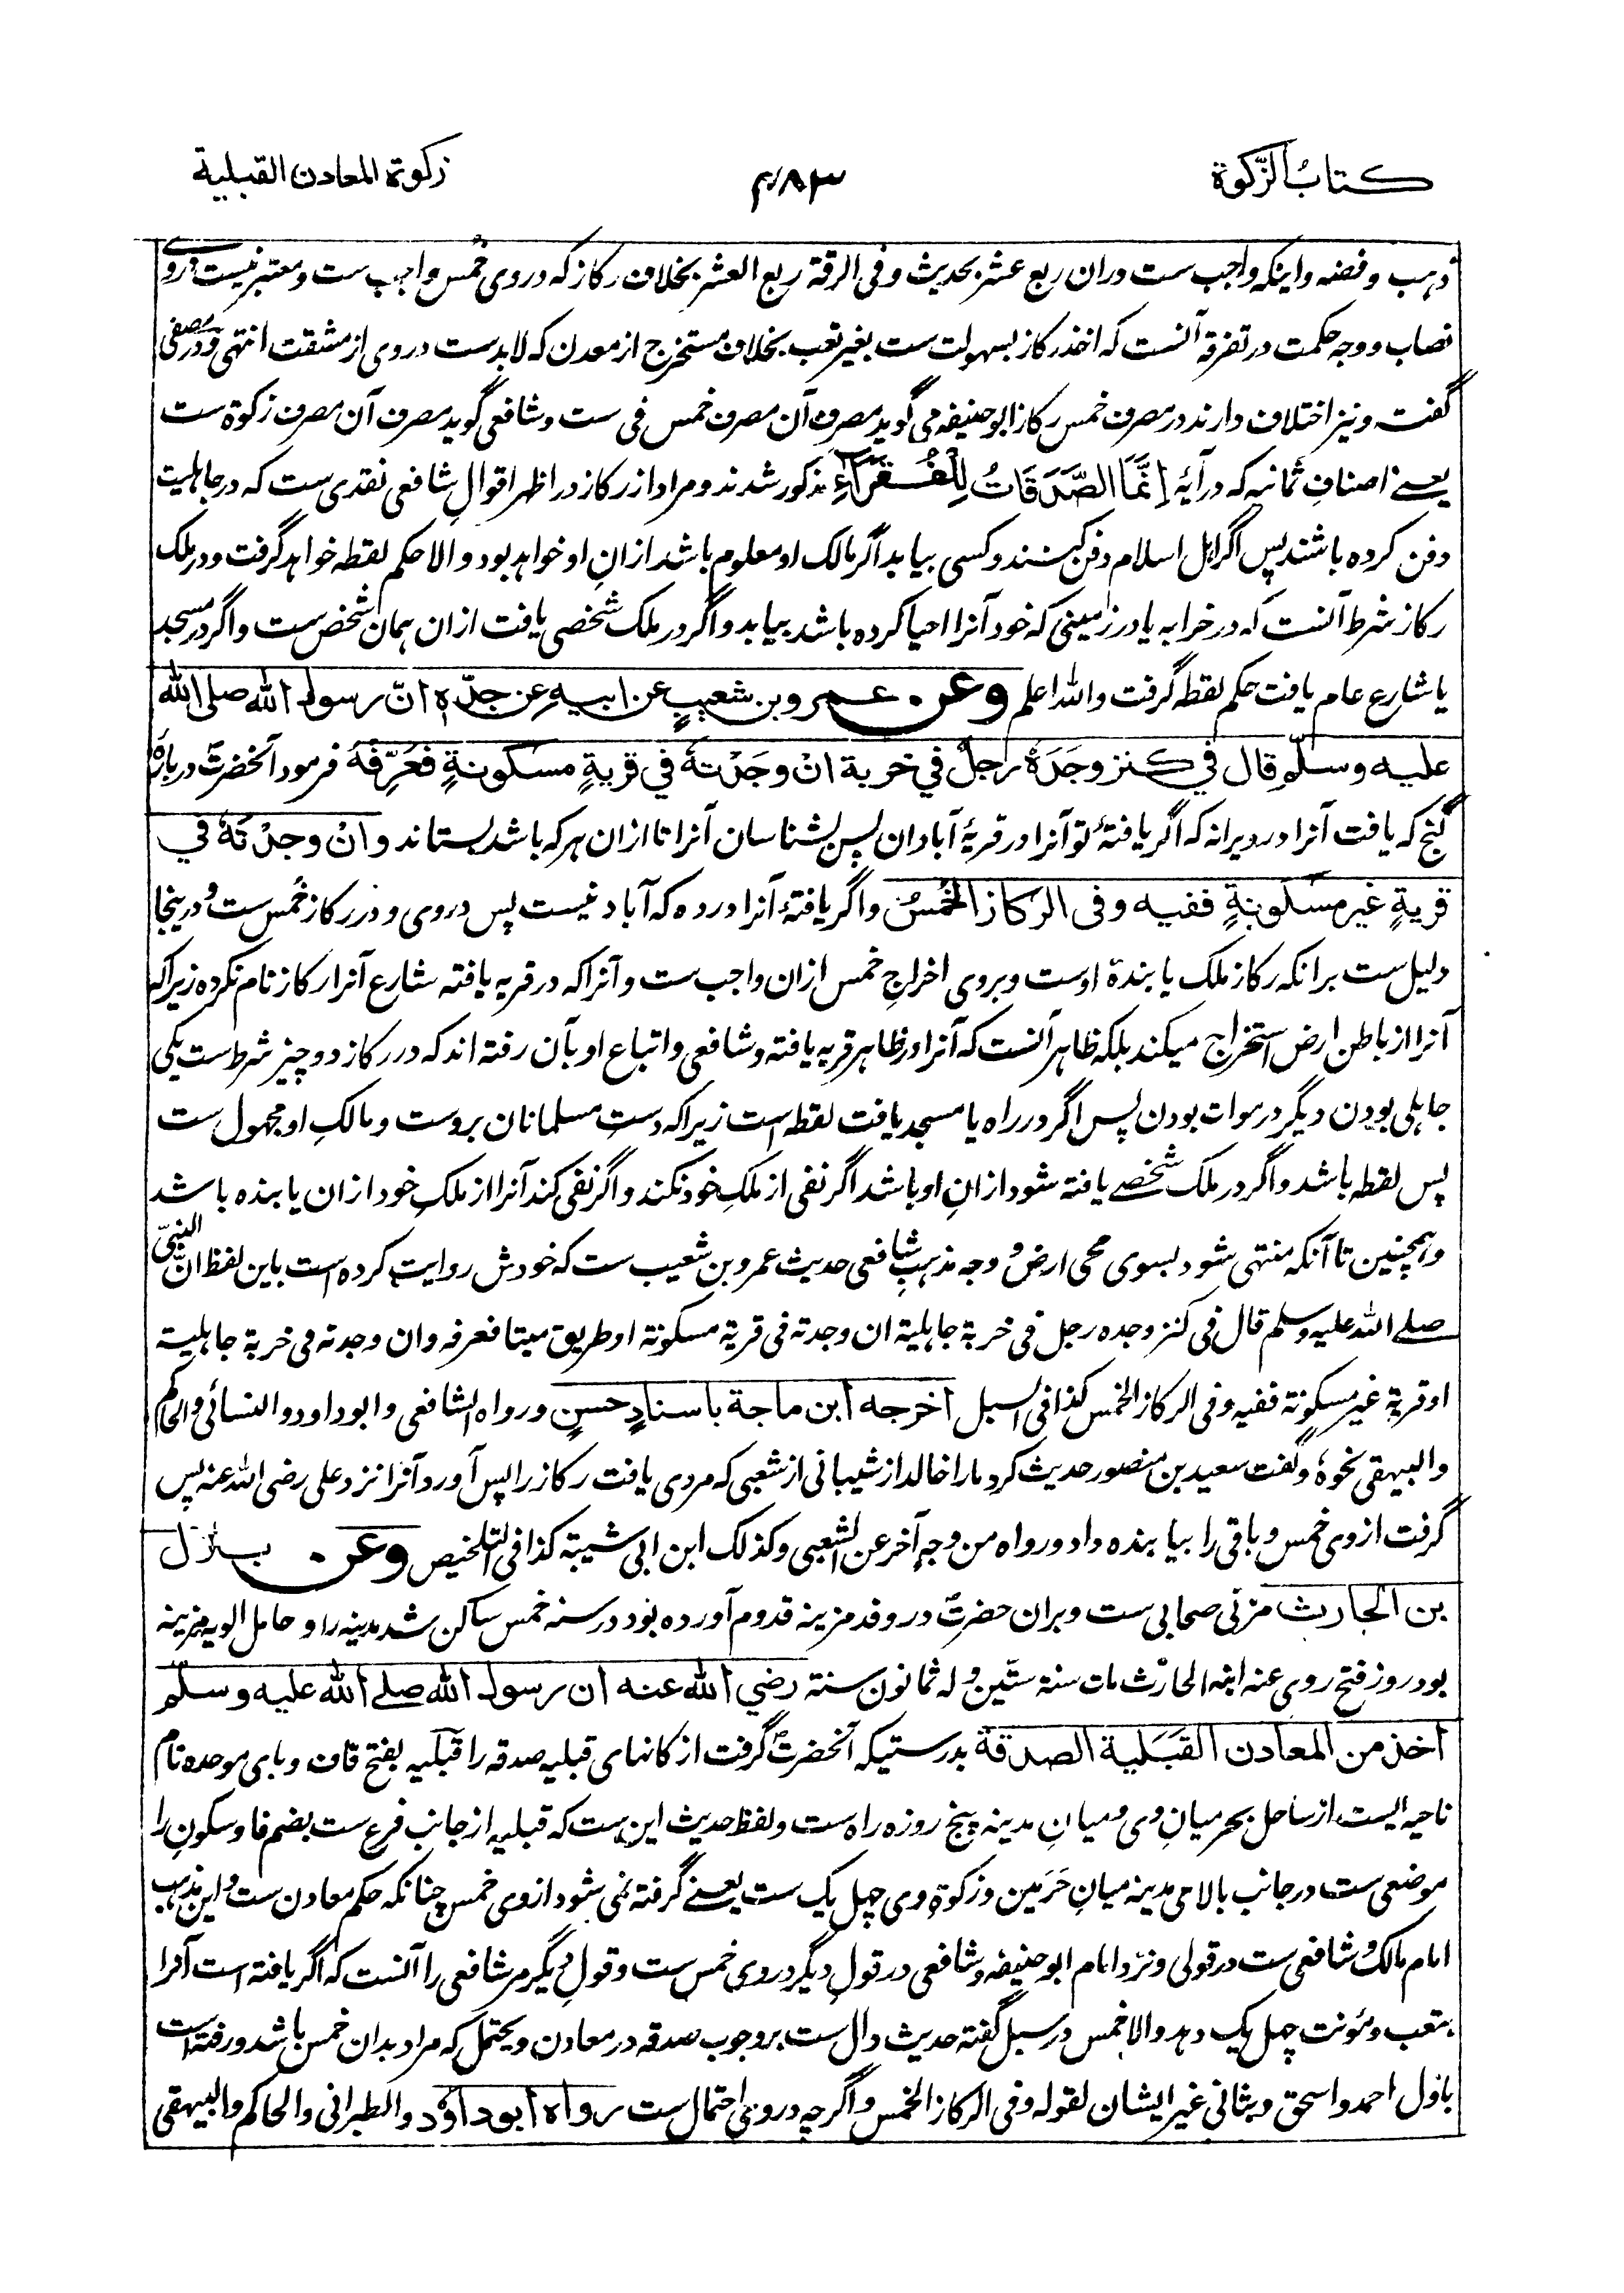 كتابُ الزَّكوة
۴۸۳
زكوة المعادن القبلية
ذهب و فضه و اینکه واجب ست دران ربع عشر بحدیث و فی الرقة ربع العشر بخلاف رکاز که در وی خُمس واجب ست و معتبر نیست در وی
نصاب و وجه حکمت در تفرقه آنست که اخذ رکاز بسهولت ست بغیر تعب بخلاف مستخرج از معدن که لابدست در وی از مشقت انتهی و در مصفی
گفت و نیز اختلاف دارند در مصرف خمس رکاز ابوحنیفه می گوید مصرف آن مصرف خمس فی ست و شافعی گوید مصرف آن مصرف زکوة ست
یعنے اصنافِ ثمانیه که در آیۂ اِنَّمَا الصَّدَقَاتُ لِلْفُقَرَآءِ مذکور شدند و مراد از رکاز در اظهر اقوالِ شافعی نقدی ست که در جاهلیت
دفن کرده باشند پس اگر اهل اسلام دفن کنند و کسی بیابد اگر مالک او معلوم باشد ازانِ او خواهد بود والا حکم لقطه خواهد گرفت و در ملک
رکاز شرط آنست که در خرابه یا در زمینی که خود آنرا احیا کرده باشد بیابد و اگر در ملک شخصی یافت ازان همان شخص ست و اگر در مسجد
یا شارع عام یافت حکم لقطه گرفت والله اعلم وعن عمرو بن شعیبٍ عن ابیهِ عن جدّه انّ رسول الله صلی الله
علیه وسلّم قال فی کنز وجَدَهُ رجلٌ فی خربة انْ وجَدْتَهُ فی قریةٍ مسکونةٍ فعَرِّفهُ فرمود آنحضرت در باره
گنج که یافت آنرا در ویرانه که اگر یافتهٔ تو آنرا در قریهٔ آبادان پس بشناسان آنرا تا ازان هر که باشد بستاند وانْ وجدْتَهُ فی
قریةٍ غیر مسکونةٍ ففیه وفی الرکاز الخُمسُ و اگر یافتهٔ آنرا در ده که آباد نیست پس در وی و در رکاز خُمس ست و درینجا
دلیل ست برانکه رکاز ملک یابندهٔ اوست و بر وی اخراجِ خمس ازان واجب ست و آنرا که در قریه یافته شارع آنرا رکاز نام نکرده زیراکه
آنرا از باطن ارض استخراج میکند بلکه ظاهر آنست که آنرا در ظاهر قریه یافته و شافعی و اتباع او بآن رفته اند که در رکاز دو چیز شرط ست یکی
جاهلی بودن دیگر در موات بودن پس اگر در راه یا مسجد یافت لقطه است زیراکه دستِ مسلمانان بروست و مالکِ او مجهول ست
پس لقطه باشد و اگر در ملک شخصے یافته شود ازانِ او باشد اگر نفی از ملکِ خود نکند و اگر نفی کند آنرا از ملکِ خود ازان یابنده باشد
و همچنین تا آنکه منتهی شود بسوی محی ارض و وجه مذهبِ شافعی حدیث عمرو بن شعیب ست که خودش روایت کرده است باین لفظ انّ النبیّ
صلے الله علیه وسلم قال فی کنز وجده رجل فی خربة جاهلیة ان وجدته فی قریة مسکونة او طریق میتا فعرفه وان وجدته فی خربة جاهلیة
او قریة غیر مسکونة ففیه وفی الرکاز الخمس کذا فی السبل اخرجه ابن ماجة باسنادٍ حسنٍ و رواه الشافعی و ابو داود و النسائی و الحاکم
والبیهقی نحوه و گفت سعید بن منصور حدیث کرد مارا خالد از شیبانی از شعبی که مردی یافت رکاز را پس آورد آنرا نزد علی رضی الله عنه پس
گرفت از وی خمس و باقی را بیابنده داد و رواه من وجهٍ آخر عن الشعبی و کذلک ابن ابی شیبة کذا فی التلخیص وعن بلال
بن الحارث مزنی صحابی ست و بران حضرت در وفد مزینه قدوم آورده بود در سنه خمس ساکن شد مدینه را و حامل الویه مزینه
بود روز فتح روی عنه ابنه الحارث مات سنة ستّین و له ثمانون سنة رضی الله عنه ان رسول الله صلے الله علیه وسلّم
اخذ من المعادن القَبَلیة الصدقة بدرستیکه آنحضرت گرفت از کانهای قبلیه صدقه را قَبَلیه بفتح قاف و بای موحده نام
ناحیه ایست از ساحل بحر میانِ وی و میانِ مدینه پنج روزه راه ست و لفظ حدیث این ست که قبلیه از جانبِ فرع ست بضم فا و سکونِ را
موضعی ست در جانب بالای مدینه میانِ حَرَمین و زکوةِ وی چهل یک ست یعنے گرفته نمی شود از وی خمس چنانکه حکم معادن ست و این مذهب
امام مالک و شافعی ست در قولی و نزد امام ابوحنیفه و شافعی در قولِ دیگر در وی خمس ست و قولِ دیگر مر شافعی را آنست که اگر یافته است آنرا
بتعب و مؤنت چهل یک دهد والا خمس در سبل گفته حدیث دال ست بر وجوب صدقه در معادن و یحتمل که مراد بدان خمس باشد و رفته است
باول احمد و اسحق و بثانی غیر ایشان لقوله وفی الرکاز الخمس و اگرچه در وی احتمال ست رواه ابو داؤد والطبرانی والحاکم والبیهقی